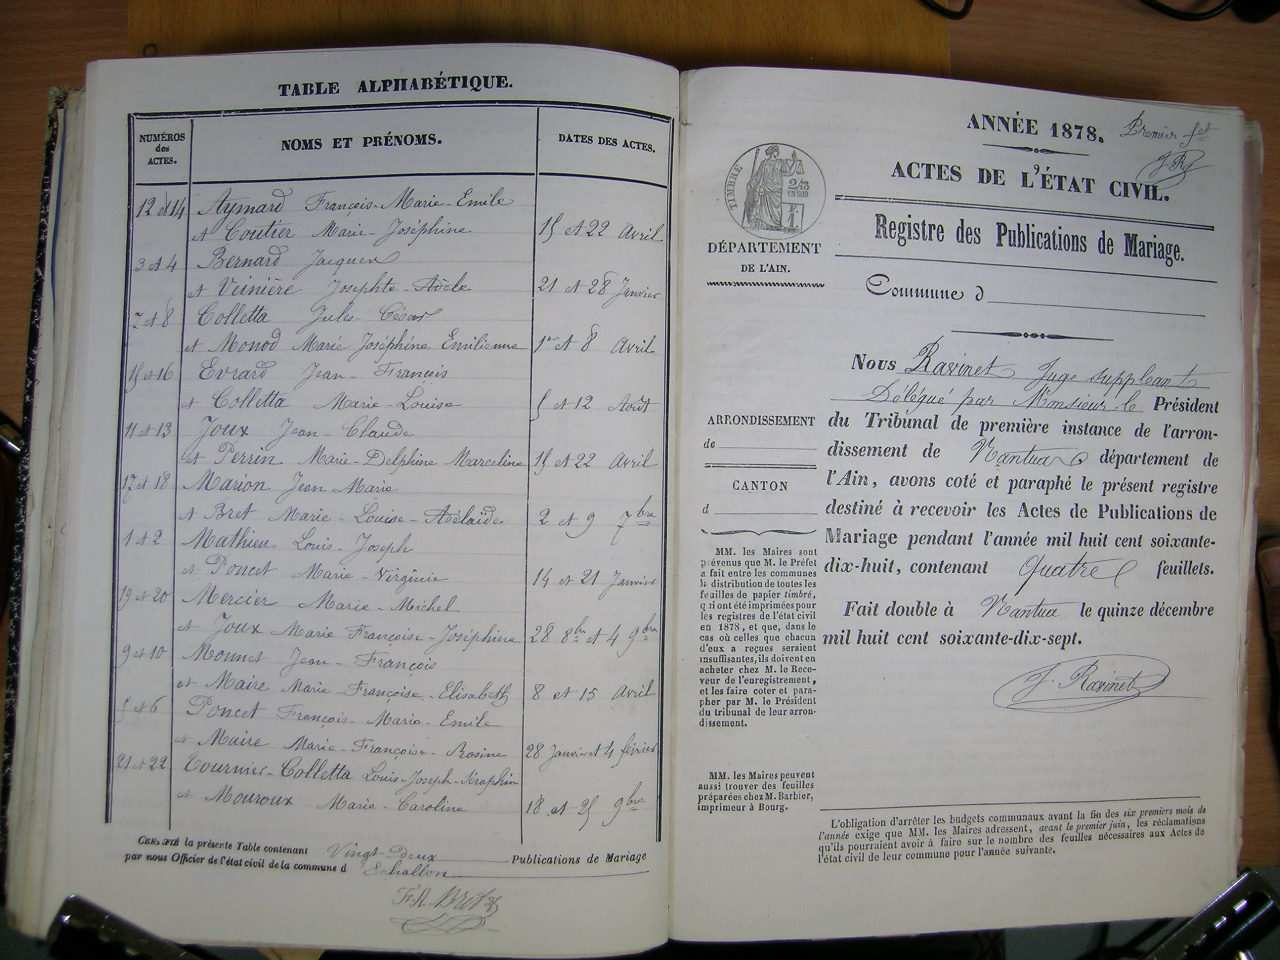 TABLE ALPHABÉTIQUE.
NUMÉROS
des
ACTES.
NOMS ET PRÉNOMS.
DATES DES ACTES.
12 et 14 Aymard François-Marie-Emile
et Coutier Marie-Joséphine 15 et 22 Avril
3 et 4 Bernard Jacques
et Vernière Josephte-Adèle 21 et 28 Janvier
7 et 8 Colletta Jules-César
et Monod Marie Joséphine Emilienne 1er et 8 Avril
15 et 16 Evrard Jean-François
et Colletta Marie-Louise 5 et 12 Août
11 et 13 Joux Jean-Claude
et Perrin Marie-Delphine Marceline 15 et 22 Avril
17 et 18 Marion Jean Marie
et Bret Marie-Louise-Adélaide 2 et 9 7bre
1 et 2 Mathieu Louis-Joseph
et Poncet Marie-Virginie 14 et 21 Janvier
19 et 20 Mercier Marie-Michel
et Joux Marie Françoise-Joséphine 28 8bre et 4 9bre
9 et 10 Monnet Jean-François
et Maire Marie-Françoise-Elisabeth 8 et 15 Avril
5 et 6 Poncet François-Marie-Emile
et Maire Marie-Françoise-Rosine 28 Janvier et 4 février
21 et 22 Tournier-Colletta Louis-Joseph-Séraphin
et Mouroux Marie-Caroline 18 et 25 9bre
CERTIFIÉ la présente Table contenant Vingt-Deux Publications de Mariage
par nous Officier de l'état civil de la commune d Echallon
ANNÉE 1878.
Premier fet
J R
ACTES DE L'ÉTAT CIVIL.
TIMBRE
DÉPARTEMENT
DE L'AIN.
Registre des Publications de Mariage.
Commune d
Nous Ravinet Juge suppléant
Délégué par Monsieur le Président
du Tribunal de première instance de l'arron-
dissement de Nantua département de
l'Ain, avons coté et paraphé le présent registre
destiné à recevoir les Actes de Publications de
Mariage pendant l'année mil huit cent soixante-
dix-huit, contenant Quatre feuillets.
Fait double à Nantua le quinze décembre
mil huit cent soixante-dix-sept.
J. Ravinet
ARRONDISSEMENT
de
CANTON
d
MM. les Maires sont
prévenus que M. le Préfet
a fait entre les communes
la distribution de toutes les
feuilles de papier timbré,
qui ont été imprimées pour
les registres de l'état civil
en 1878, et que, dans le
cas où celles que chacun
d'eux a reçues seraient
insuffisantes, ils doivent en
acheter chez M. le Rece-
veur de l'enregistrement,
et les faire coter et para-
pher par M. le Président
du tribunal de leur arron-
dissement.
MM. les Maires peuvent
aussi trouver des feuilles
préparées chez M. Barbier,
imprimeur à Bourg.
L'obligation d'arrêter les budgets communaux avant la fin des six premiers mois de
l'année exige que MM. les Maires adressent, avant le premier juin, les réclamations
qu'ils pourraient avoir à faire sur le nombre des feuilles nécessaires aux Actes de
l'état civil de leur commune pour l'année suivante.